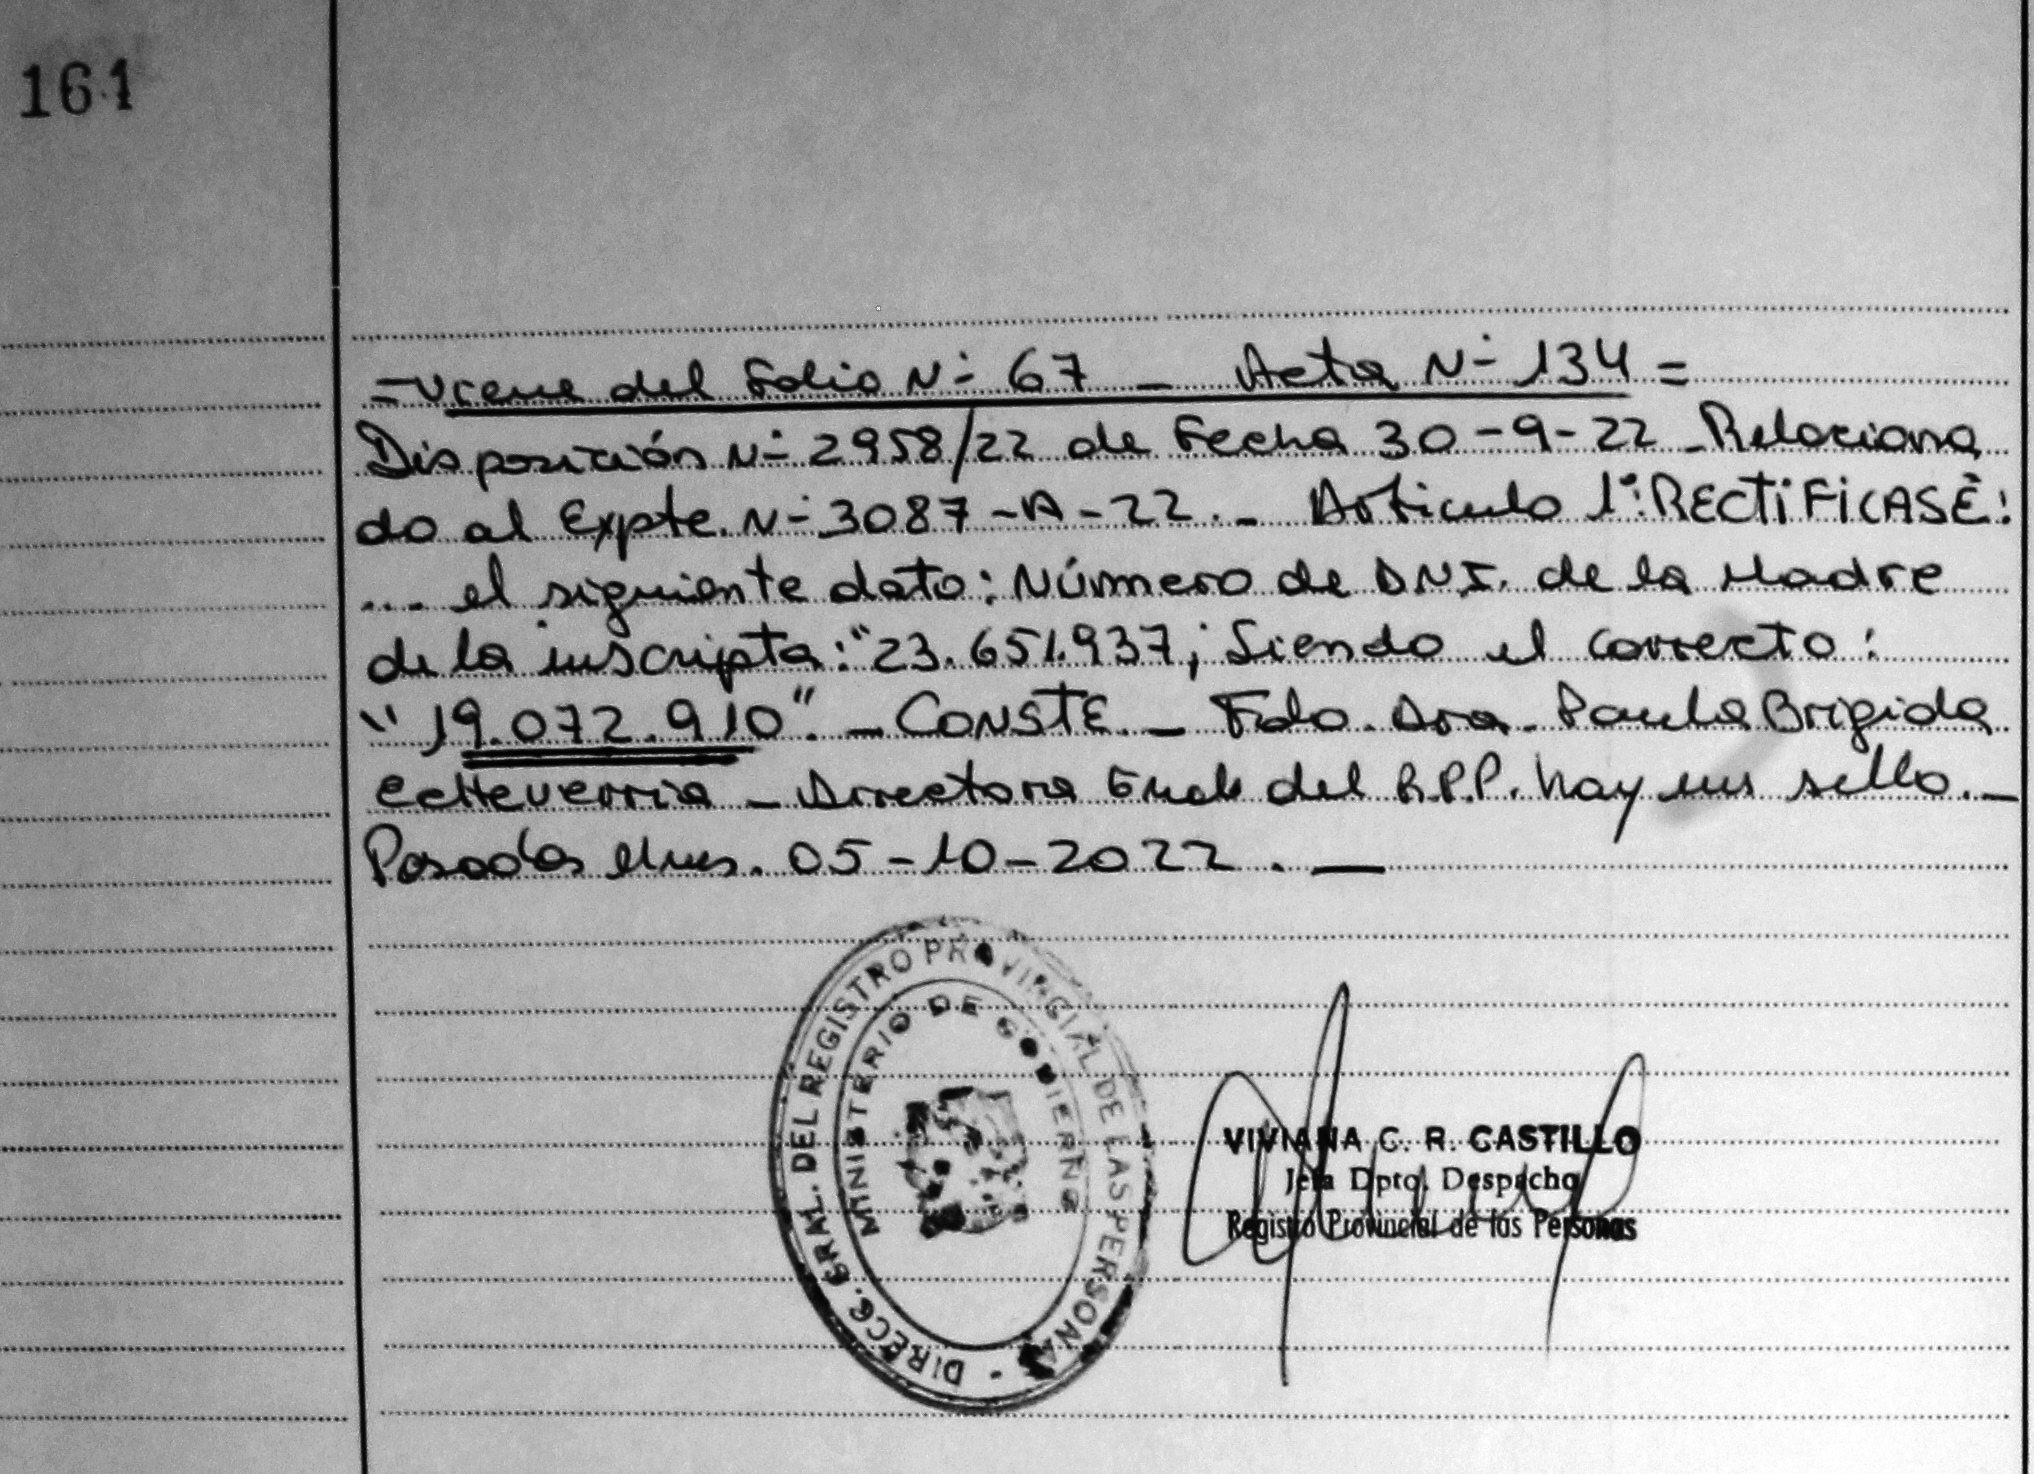 161
=Viene del Folio Nº 67 - Acta Nº 134=
Disposición Nº 2958/22 de Fecha 30-9-22 - Relaciona
do al Expte. Nº 3087-A-22.- Articulo 1º: RECTIFICASÉ:
.... el siguiente dato: Número de D.N.I. de la Madre
de la inscripta: "23.651.937; Siendo el correcto:
"19.072.910". - CONSTE. - Fdo. Dra. Paula Brigida
Echeverria - Directora del R.P.P. hay un sello. -
Posadas Mnes. 05-10-2022. —
DIRECC. GRAL. DEL REGISTRO PROVINCIAL DE LAS PERSONAS -
MINISTERIO DE GOBIERNO
VIVIANA C. R. CASTILLO
Jefa Dpto. Despacho
Registro Provincial de las Personas